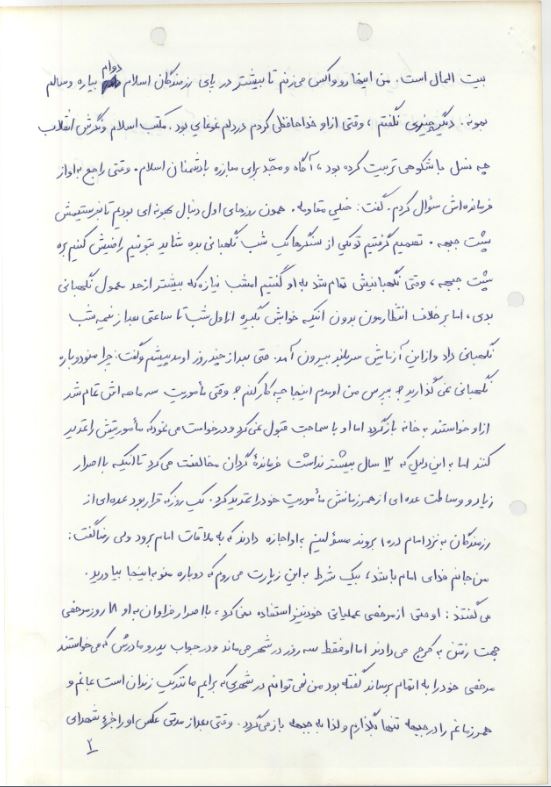 بیت المال است. من اینها رو واکس می‌زنم تا بیشتر در پای رزمندگان اسلام دوام بیاره و سالم
بمونه. دیگه چیزی نگفتم، وقتی از او خداحافظی کردم در دلم غوغایی بود. مکتب اسلام و نگرش انقلاب
چه نسل باشکوهی تربیت کرده بود، آگاه و مجد برای مبارزه با دشمنان اسلام. وقتی راجع به او از
فرمانده‌اش سؤال کردم. گفت: خیلی مقاومه. همون روزهای اول دنبال بهونه ای بودیم تا بفرستیمش
پشت جبهه. تصمیم گرفتیم تو یکی از سنگرها یک شب نگهبانی بده شاید بتونیم راضیش کنیم بره
پشت جبهه، وقتی نگهبانیش تمام شد به او گفتیم امشب نیازه که بیشتر از حد معمول نگهبانی
بدی، اما برخلاف انتظارمون بدون آنکه خوابش بگیره از اول شب تا ساعتی بعد از نیمه شب
نگهبانی داد و از این آزمایش سربلند بیرون آمد. حتی بعد از چند روز اومد پیشم و گفت: چرا منو دوباره
نگهبانی نمی گذارید؟ پس من اومدم اینجا چه کار کنم؟ وقتی مأموریت سه ماهه اش تمام شد
از او خواستند به خانه بازگردد اما او با سماجت قبول نمی کرد و درخواست می نمود که مأموریتش را تمدید
کنند اما به این دلیل که ۱۲ سال بیشتر نداشت فرماندهٔ گردان مخالفت می کرد تا اینکه با اصرار
زیاد و وساطت عده ای از همرزمانش مأموریت خود را تمدید کرد. یک روز که قرار بود عده ای از
رزمندگان به نزد امام (ره) بروند مسؤلین به او اجازه دادند که به ملاقات امام برود ولی رضا گفت:
من جانم فدای امام باشد، بیک شرط به این زیارت می روم که دوباره منو به اینجا بیاورید.
می گفتند: او حتی از مرخصی عملیاتی خود نیز استفاده نمی کرد، با اصرار فراوان به او ۱۸ روز مرخصی
جهت رفتن به کرج می دادند اما او فقط سه روز در شهر می ماند و در جواب پدر و مادرش که می خواستند
مرخصی خود را به اتمام برساند گفته بود من نمی توانم در شهری که برایم مانند یک زندان است بمانم و
همرزمانم را در جبهه تنها بگذارم و لذا به جبهه باز می گردد. وقتی بعد از مدتی عکس او را جزء شهدای
۳